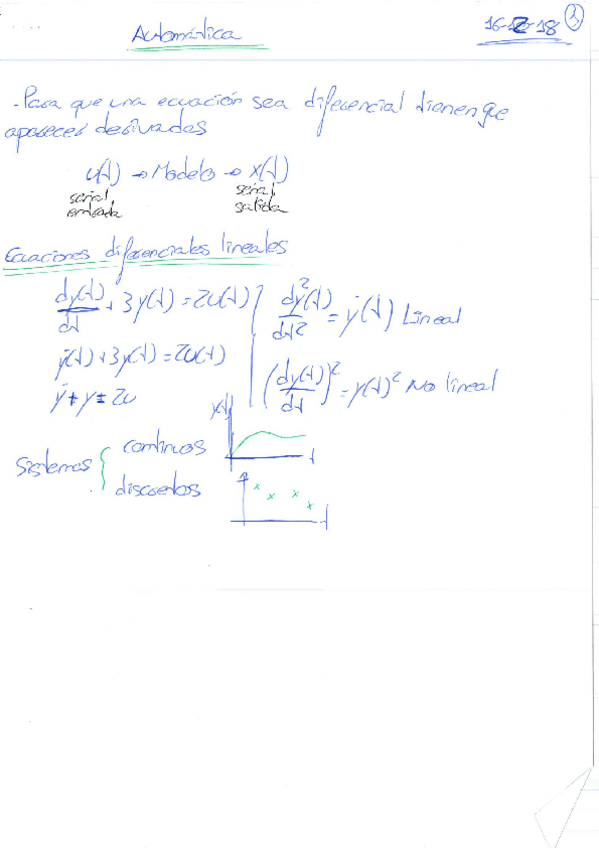 Automática
16-12-18 1
- Para que una ecuación sea diferencial tienen que
aparecer derivadas
u(t) → Modelo → x(t)
señal entrada
señal salida
Ecuaciones diferenciales lineales
dy(t)/dt + 3y(t) = 2u(t)
ẏ(t) + 3y(t) = 2u(t)
ẏ + y = 2u
dy²(t)/dt² = ÿ(t) Lineal
(dy(t)/dt)² = y(t)² No lineal
Sistemas { continuos
discretos
y(t)
t
t